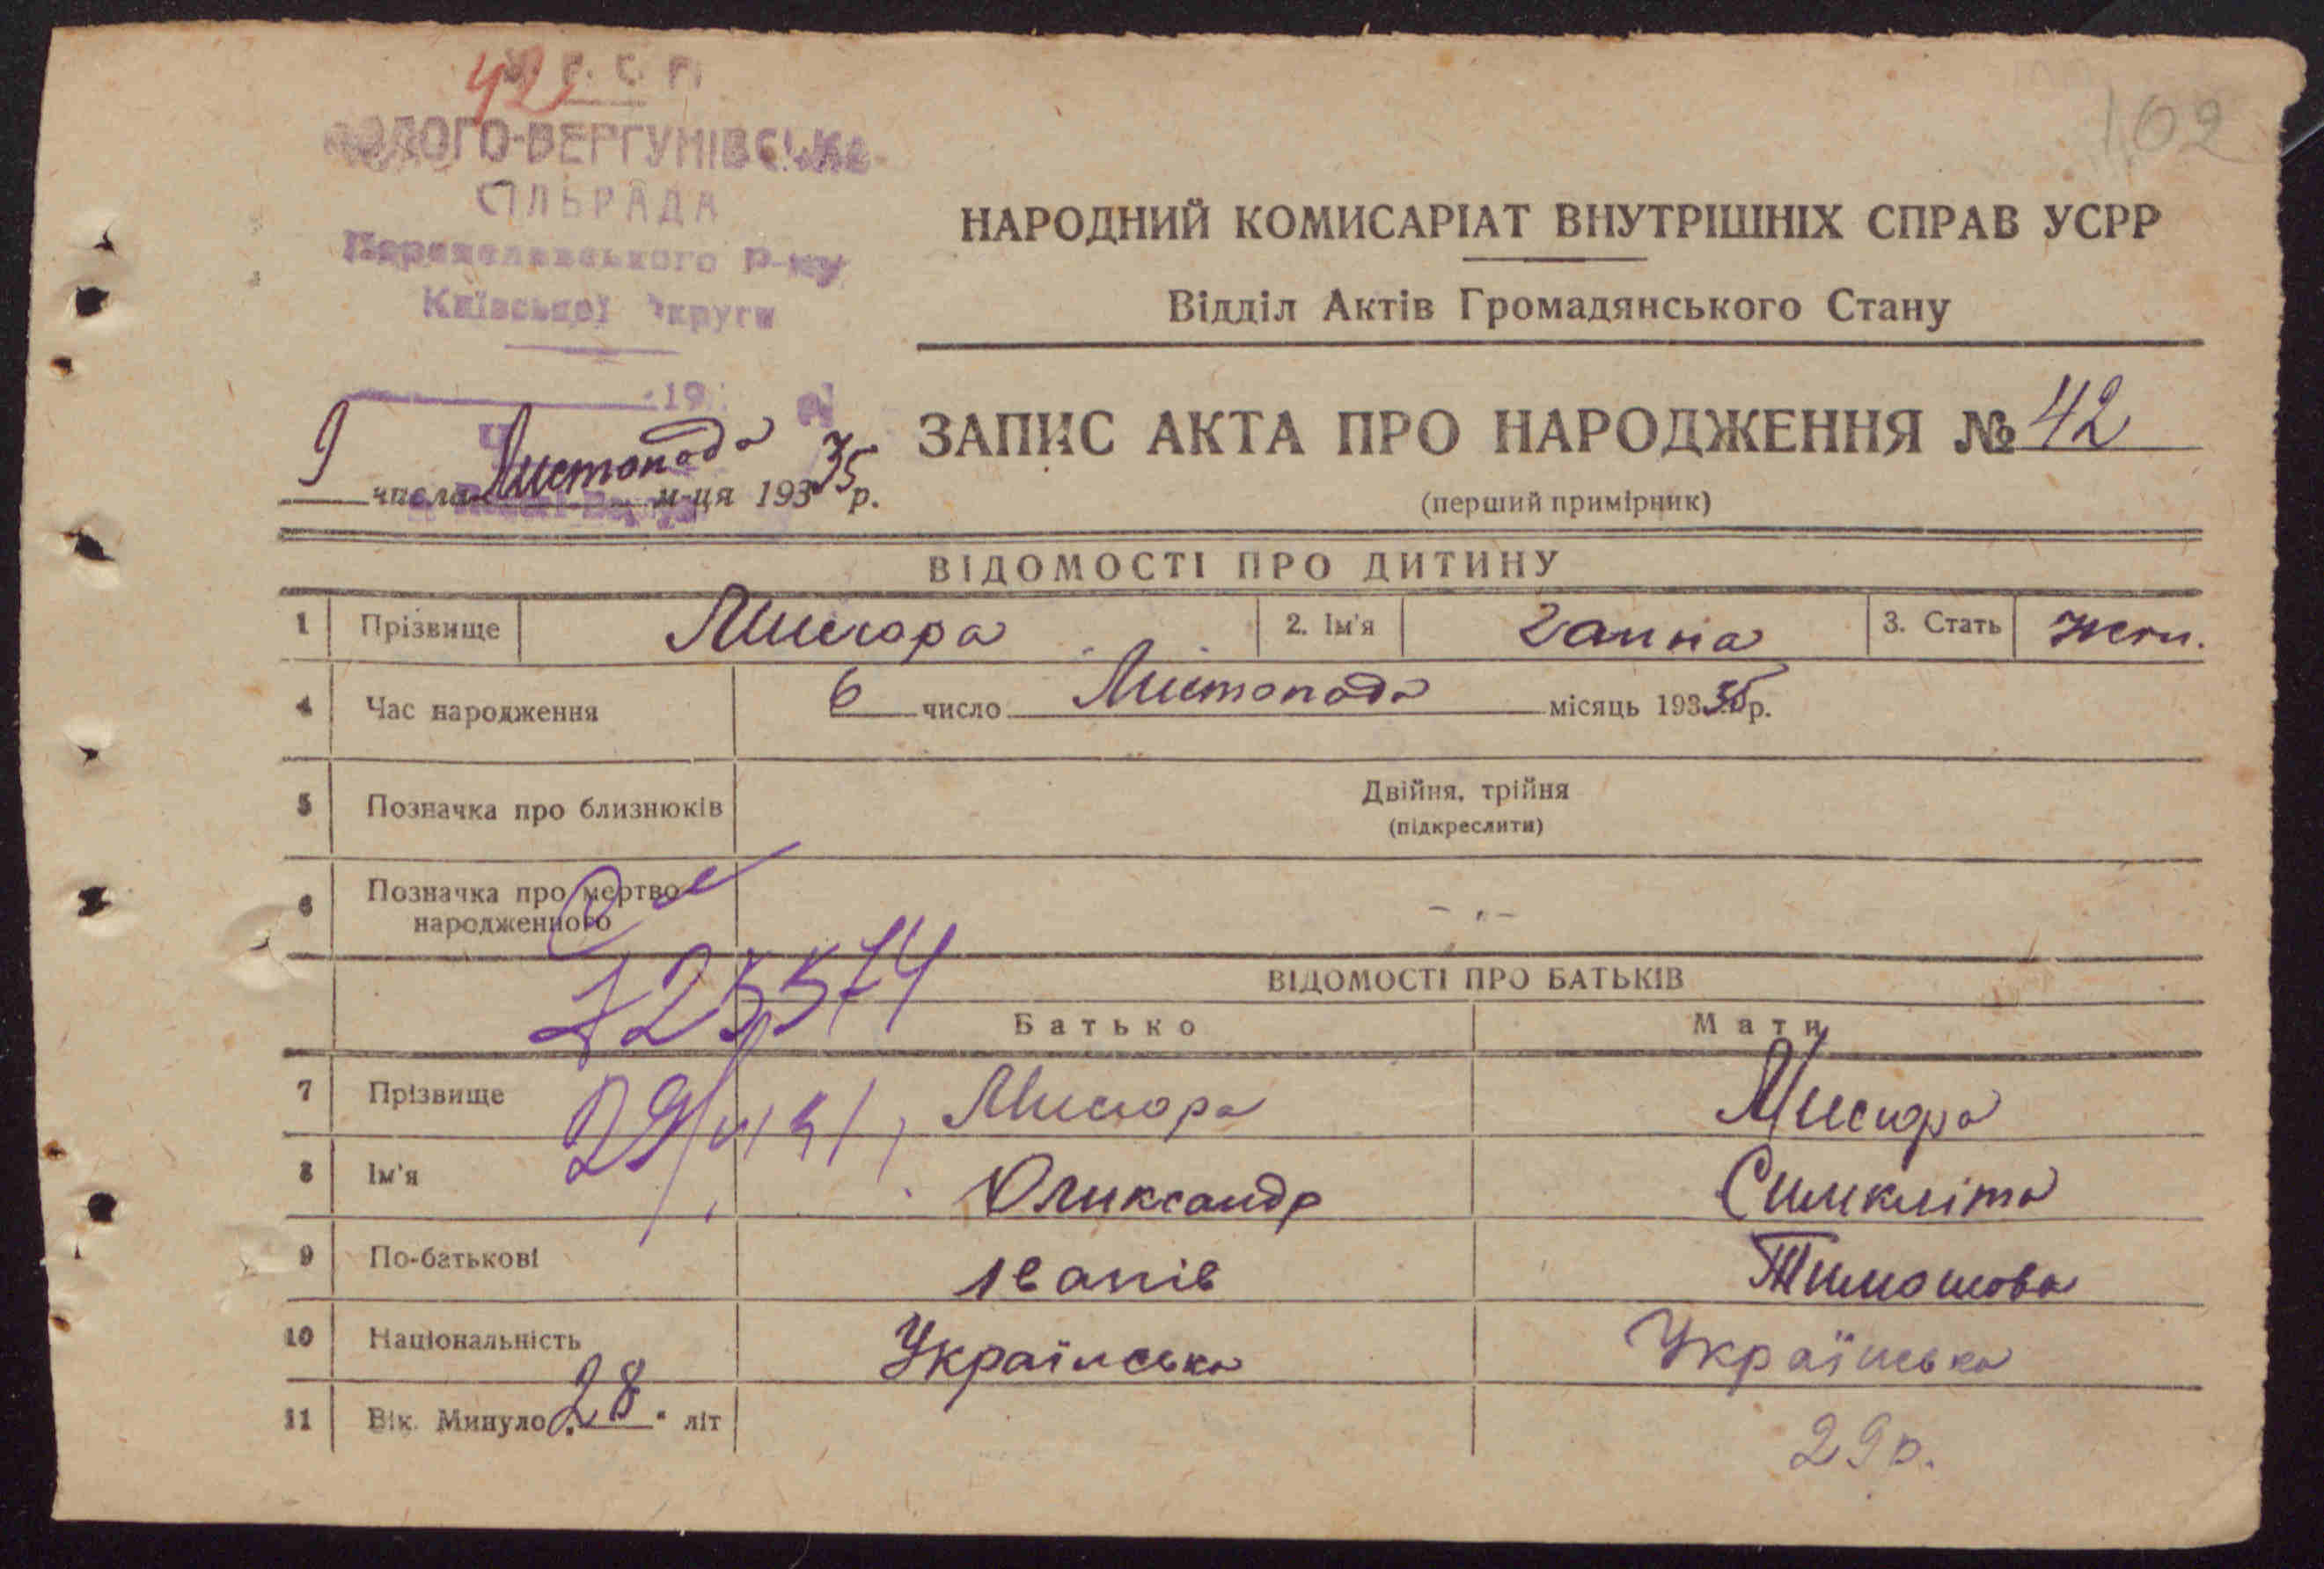 У. С. Р. Р.
42
102
ПОЛОГО-ВЕРГУНІВСЬКА
СІЛЬРАДА
Переяславського Р-ну
Київської Округи
НАРОДНИЙ КОМИСАРІАТ ВНУТРІШНІХ СПРАВ УСРР
Відділ Актів Громадянського Стану
19
9 числа Листопада м-ця 19335 р.
ЗАПИС АКТА ПРО НАРОДЖЕННЯ № 42
(перший примірник)
ВІДОМОСТІ ПРО ДИТИНУ
1 Прізвище Мисюра 2. Ім'я Ганна 3. Стать жен.
4 Час народження 6 число Листопада місяць 19335 р.
5 Позначка про близнюків Двійня, трійня
(підкреслити)
6 Позначка про мертво-
народженного - „ -
ВІДОМОСТІ ПРО БАТЬКІВ
Батько Мати
7 Прізвище Мисюра Мисюра
8 Ім'я Олександр Синкліта
9 По-батькові Іванів Тимошова
10 Національність Українська Українська
11 Вік. Минуло 28 літ 29 р.